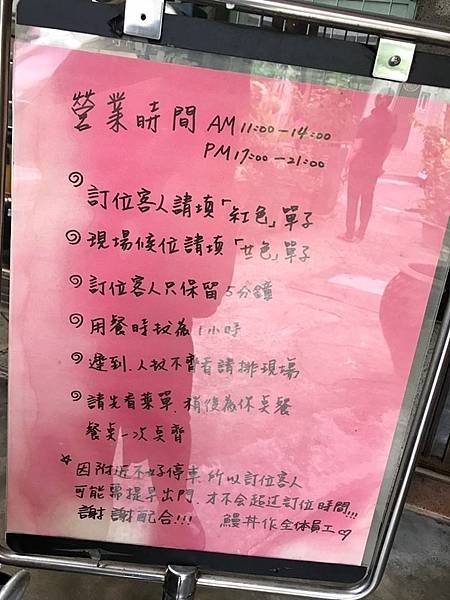 營業時間 AM 11:00-14:00
PM 17:00-21:00
訂位客人請填「紅色」單子
現場候位請填「廿色」單子
訂位客人只保留5分鐘
用餐時段為1小時
遲到、人數不齊者請排現場
請先看菜單,稍後為你點餐
餐點一次點齊
☆因附近不好停車,所以訂位客人
可能需提早出門,才不會超過訂位時間!!!
謝謝配合!!! 鰻丼作全体員工